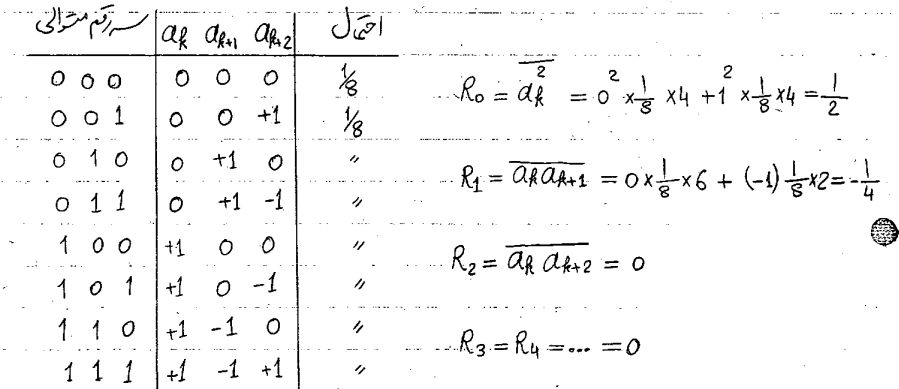 سه رقم متوالی a_k a_{k+1} a_{k+2} احتمال
0 0 0 0 0 0 1/8
0 0 1 0 0 +1 1/8
0 1 0 0 +1 0 〃
0 1 1 0 +1 -1 〃
1 0 0 +1 0 0 〃
1 0 1 +1 0 -1 〃
1 1 0 +1 -1 0 〃
1 1 1 +1 -1 +1 〃
R₀ = \overline{a_k^2} = 0² × 1/8 × 4 + 1² × 1/8 × 4 = 1/2
R₁ = \overline{a_k a_{k+1}} = 0 × 1/8 × 6 + (-1) 1/8 × 2 = -1/4
R₂ = \overline{a_k a_{k+2}} = 0
R₃ = R₄ = ... = 0